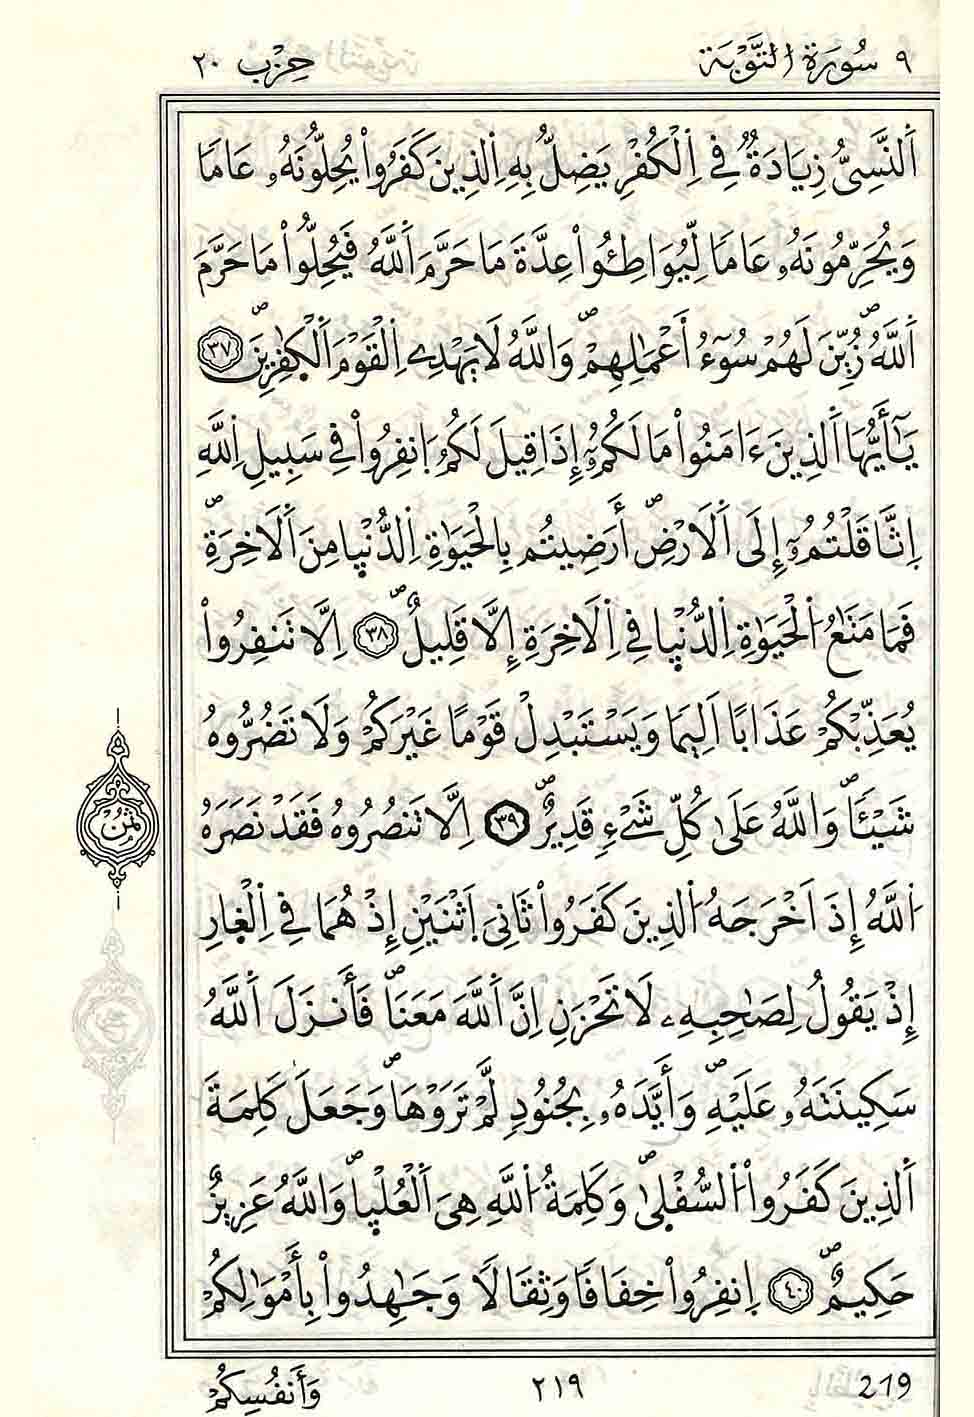 ٩ سُورَةُ التَّوْبَة حِزْب ٢٠
اَ۬لنَّسِىُّ زِيَادَةٞ فِے اِ۬لْكُفْرِ يَضِلُّ بِهِ اِ۬لذِينَ كَفَرُواْ يُحِلُّونَهُۥ عَاماٗ
وَيُحَرِّمُونَهُۥ عَاماٗ لِّيُوَاطِـُٔواْ عِدَّةَ مَا حَرَّمَ اَ۬للَّهُ فَيُحِلُّواْ مَا حَرَّمَ
اَ۬للَّهُۖ زُيِّنَ لَهُمْ سُوٓءُ اَعْمَٰلِهِمْۖ وَاللَّهُ لَا يَهْدِے اِ۬لْقَوْمَ اَ۬لْكٰفِرِينَۖ ٣٧
يَٰٓأَيُّهَا اَ۬لذِينَ ءَامَنُواْ مَا لَكُمُۥٓ إِذَا قِيلَ لَكُمُ اُ۪نفِرُواْ فِے سَبِيلِ اِ۬للَّهِ
اِ۪ثَّاقَلْتُمُۥٓ إِلَى اَ۬لَارْضِۖ أَرَضِيتُم بِالْحَيَوٰةِ اِ۬لدُّنْي۪ا مِنَ اَ۬لَاخِرَةِۖ
فَمَا مَتَٰعُ اُ۬لْحَيَوٰةِ اِ۬لدُّنْي۪ا فِے اِ۬لَاخِرَةِ إِلَّا قَلِيلٌۖ ٣٨ اِلَّا تَنفِرُواْ
يُعَذِّبْكُمْ عَذَاباً اَلِيماٗ وَيَسْتَبْدِلْ قَوْماً غَيْرَكُمْ وَلَا تَضُرُّوهُ
شَيْـٔاٗۖ وَاللَّهُ عَلَىٰ كُلِّ شَےْءٖ قَدِيرٌۖ ٣٩ اِلَّا تَنصُرُوهُ فَقَدْ نَصَرَهُ
اُ۬للَّهُ إِذَ اَخْرَجَهُ اُ۬لذِينَ كَفَرُواْ ثَانِيَ اَ۪ثْنَيْنِ إِذْ هُمَا فِے اِ۬لْغ۪ارِ
إِذْ يَقُولُ لِصَٰحِبِهِۦ لَا تَحْزَنِ اِنَّ اَ۬للَّهَ مَعَنَاۖ فَأَنزَلَ اَ۬للَّهُ
سَكِينَتَهُۥ عَلَيْهِۖ وَأَيَّدَهُۥ بِجُنُودٖ لَّمْ تَرَوْهَاۖ وَجَعَلَ كَلِمَةَ
اَ۬لذِينَ كَفَرُواْ اُ۬لسُّفْل۪ىٰۖ وَكَلِمَةُ اُ۬للَّهِ هِيَ اَ۬لْعُلْي۪اۖ وَاللَّهُ عَزِيزٌ
حَكِيمٌۖ ٤٠ اِ۪نفِرُواْ خِفَافاٗ وَثِقَالاٗ وَجَٰهِدُواْ بِأَمْوَٰلِكُمْ
ثُمُن
وَأَنفُسِكُمْ ٢١٩ 219